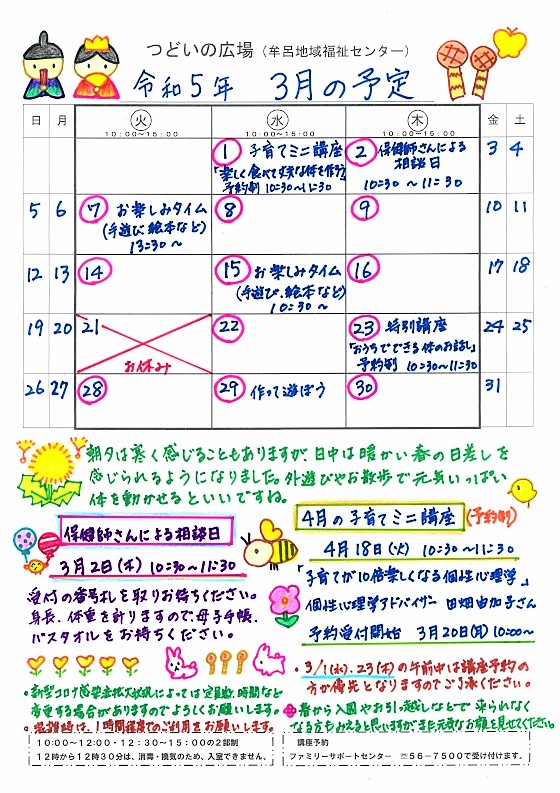 つどいの広場(牟呂地域福祉センター)
令和5年 3月の予定
日 月 火 水 木 金 土
10:00~15:00 10:00~15:00 10:00~15:00
1 子育てミニ講座
「楽しく食べて丈夫な体を作ろう」
予約制 10:30~11:30
2 保健師さんによる
相談日
10:30~11:30
3 4
5 6
7 お楽しみタイム
(手遊び、絵本など)
13:30~
8 9 10 11
12 13 14
15 お楽しみタイム
(手遊び、絵本など)
10:30~
16 17 18
19 20 21
お休み
22
23 特別講座
「おうちでできる体のお話し」
予約制 10:30~11:30
24 25
26 27 28
29 作って遊ぼう
30 31
朝夕は寒く感じることもありますが、日中は暖かい春の日差しを
感じられるようになりました。外遊びやお散歩で元気いっぱい
体を動かせるといいですね。
保健師さんによる相談日
3月2日(木) 10:30~11:30
受付の番号札を取りお待ちください。
身長、体重を計りますので、母子手帳、
バスタオルをお持ちください。
4月の子育てミニ講座 (予約制)
4月18日(火) 10:30~11:30
「子育てが10倍楽しくなる個性心理学」
個性心理学アドバイザー 田畑由加子さん
予約受付開始 3月20日(月) 10:00~
・3/1(水)、23(木)の午前中は講座予約の
方が優先となりますのでご了承ください。
・新型コロナ感染拡大状況によっては定員数、時間など
変更する場合がありますのでよろしくお願いします。
・混雑時は、1時間程度でのご利用をお願いします。
春から入園やお引っ越しなどで来られなく
なる方もみえると思いますが、また元気なお顔を見せてください。
10:00~12:00・12:30~15:00の2部制
12時から12時30分は、消毒・換気のため、入室できません。
講座予約
ファミリーサポートセンター ☎56-7500で受け付けます。